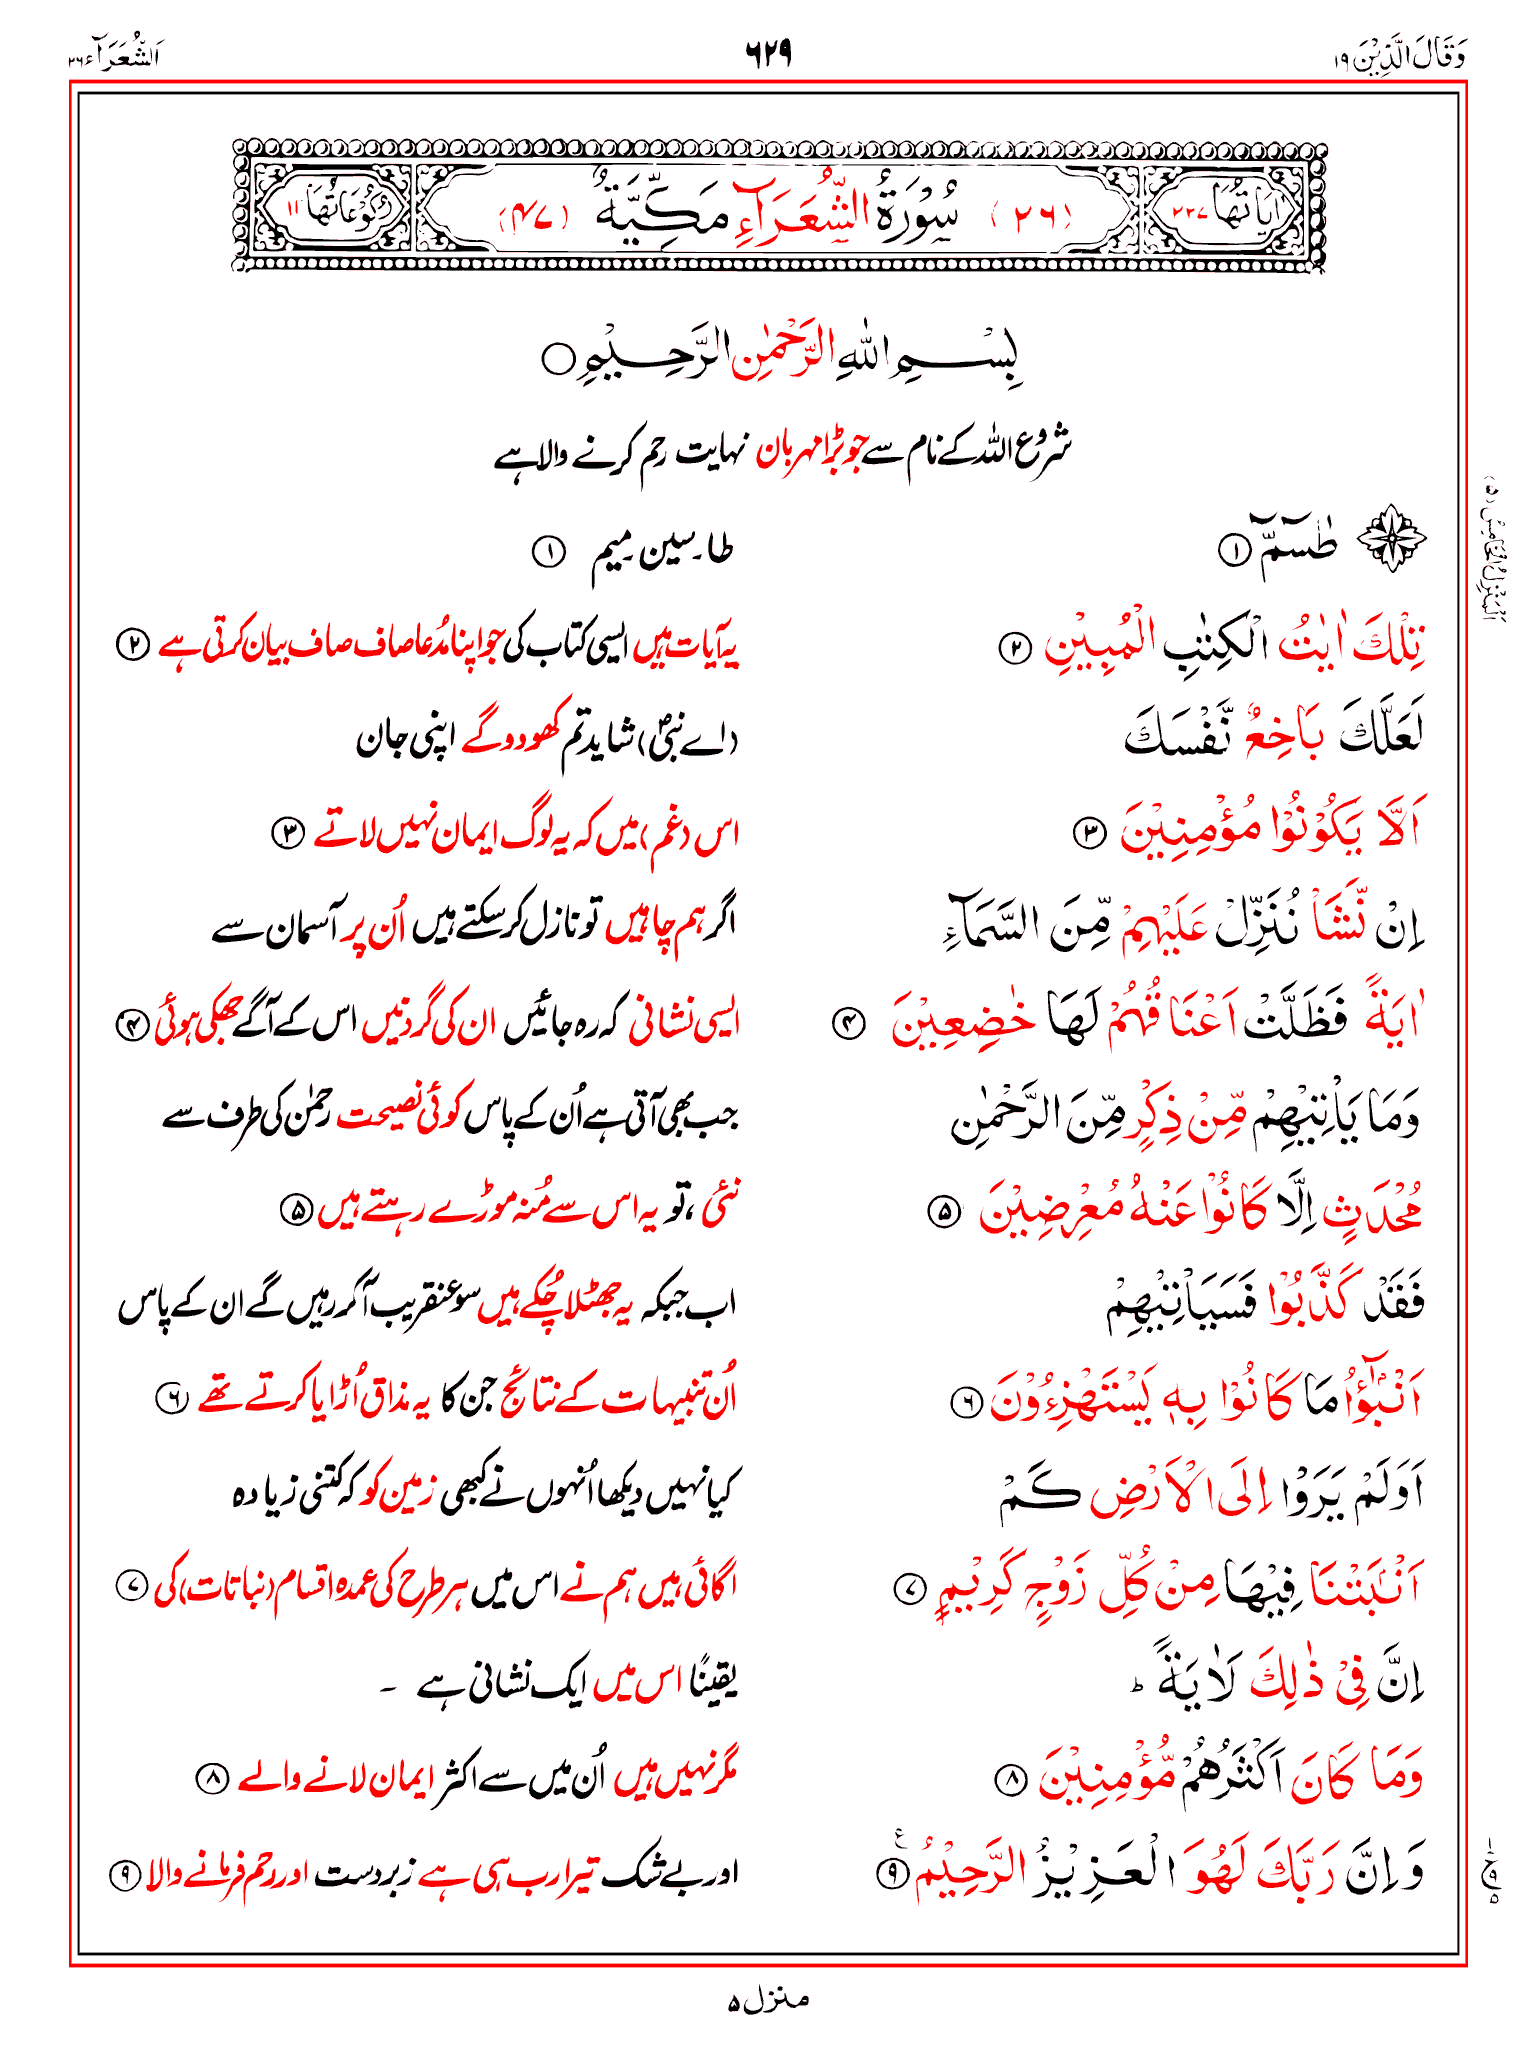 وَقَالَ الَّذِيْنَ ۱۹
۶۲۹
اَلشُّعَرَآء ۲۶
اٰیَاتُهَا ۲۲۷
(۲۶) سُوْرَةُ الشُّعَرَآءِ مَكِّيَّةٌ (۴۷)
رُكُوْعَاتُهَا ۱۱
بِسْمِ اللّٰهِ الرَّحْمٰنِ الرَّحِيْمِ ○
شروع اللہ کے نام سے جو بڑا مہربان نہایت رحم کرنے والا ہے
طٰسٓمّٓ ①
طا۔ سین۔ میم ①
تِلْكَ اٰيٰتُ الْكِتٰبِ الْمُبِيْنِ ②
یہ آیات ہیں ایسی کتاب کی جو اپنا مُدعا صاف صاف بیان کرتی ہے ②
لَعَلَّكَ بَاخِعٌ نَّفْسَكَ
(اے نبیؐ) شاید تم کھو دو گے اپنی جان
اَلَّا يَكُوْنُوْا مُؤْمِنِيْنَ ③
اس (غم) میں کہ یہ لوگ ایمان نہیں لاتے ③
اِنْ نَّشَاْ نُنَزِّلْ عَلَيْهِمْ مِّنَ السَّمَآءِ
اگر ہم چاہیں تو نازل کر سکتے ہیں اُن پر آسمان سے
اٰيَةً فَظَلَّتْ اَعْنَاقُهُمْ لَهَا خٰضِعِيْنَ ④
ایسی نشانی کہ رہ جائیں ان کی گردنیں اس کے آگے جھکی ہوئی ④
وَمَا يَاْتِيْهِمْ مِّنْ ذِكْرٍ مِّنَ الرَّحْمٰنِ
جب بھی آتی ہے اُن کے پاس کوئی نصیحت رحمٰن کی طرف سے
مُحْدَثٍ اِلَّا كَانُوْا عَنْهُ مُعْرِضِيْنَ ⑤
نئی، تو یہ اس سے مُنہ موڑے رہتے ہیں ⑤
فَقَدْ كَذَّبُوْا فَسَيَاْتِيْهِمْ
اب جبکہ یہ جھٹلا چُکے ہیں سو عنقریب آ کر رہیں گے ان کے پاس
اَنْۢبٰٓؤُا مَا كَانُوْا بِهٖ يَسْتَهْزِءُوْنَ ⑥
اُن تنبیہات کے نتائج جن کا یہ مذاق اُڑایا کرتے تھے ⑥
اَوَلَمْ يَرَوْا اِلَى الْاَرْضِ كَمْ
کیا نہیں دیکھا اُنہوں نے کبھی زمین کو کہ کتنی زیادہ
اَنْۢبَتْنَا فِيْهَا مِنْ كُلِّ زَوْجٍ كَرِيْمٍ ⑦
اگائی ہیں ہم نے اس میں ہر طرح کی عمدہ اقسام (نباتات) کی ⑦
اِنَّ فِيْ ذٰلِكَ لَاٰيَةً ؕ
یقینًا اس میں ایک نشانی ہے ۔
وَمَا كَانَ اَكْثَرُهُمْ مُّؤْمِنِيْنَ ⑧
مگر نہیں ہیں اُن میں سے اکثر ایمان لانے والے ⑧
وَاِنَّ رَبَّكَ لَهُوَ الْعَزِيْزُ الرَّحِيْمُ ⑨ ع
اور بے شک تیرا رب ہی ہے زبردست اور رحم فرمانے والا ⑨
اَلْمَنْزِلُ الْخَامِسُ (۵)
منزل ۵